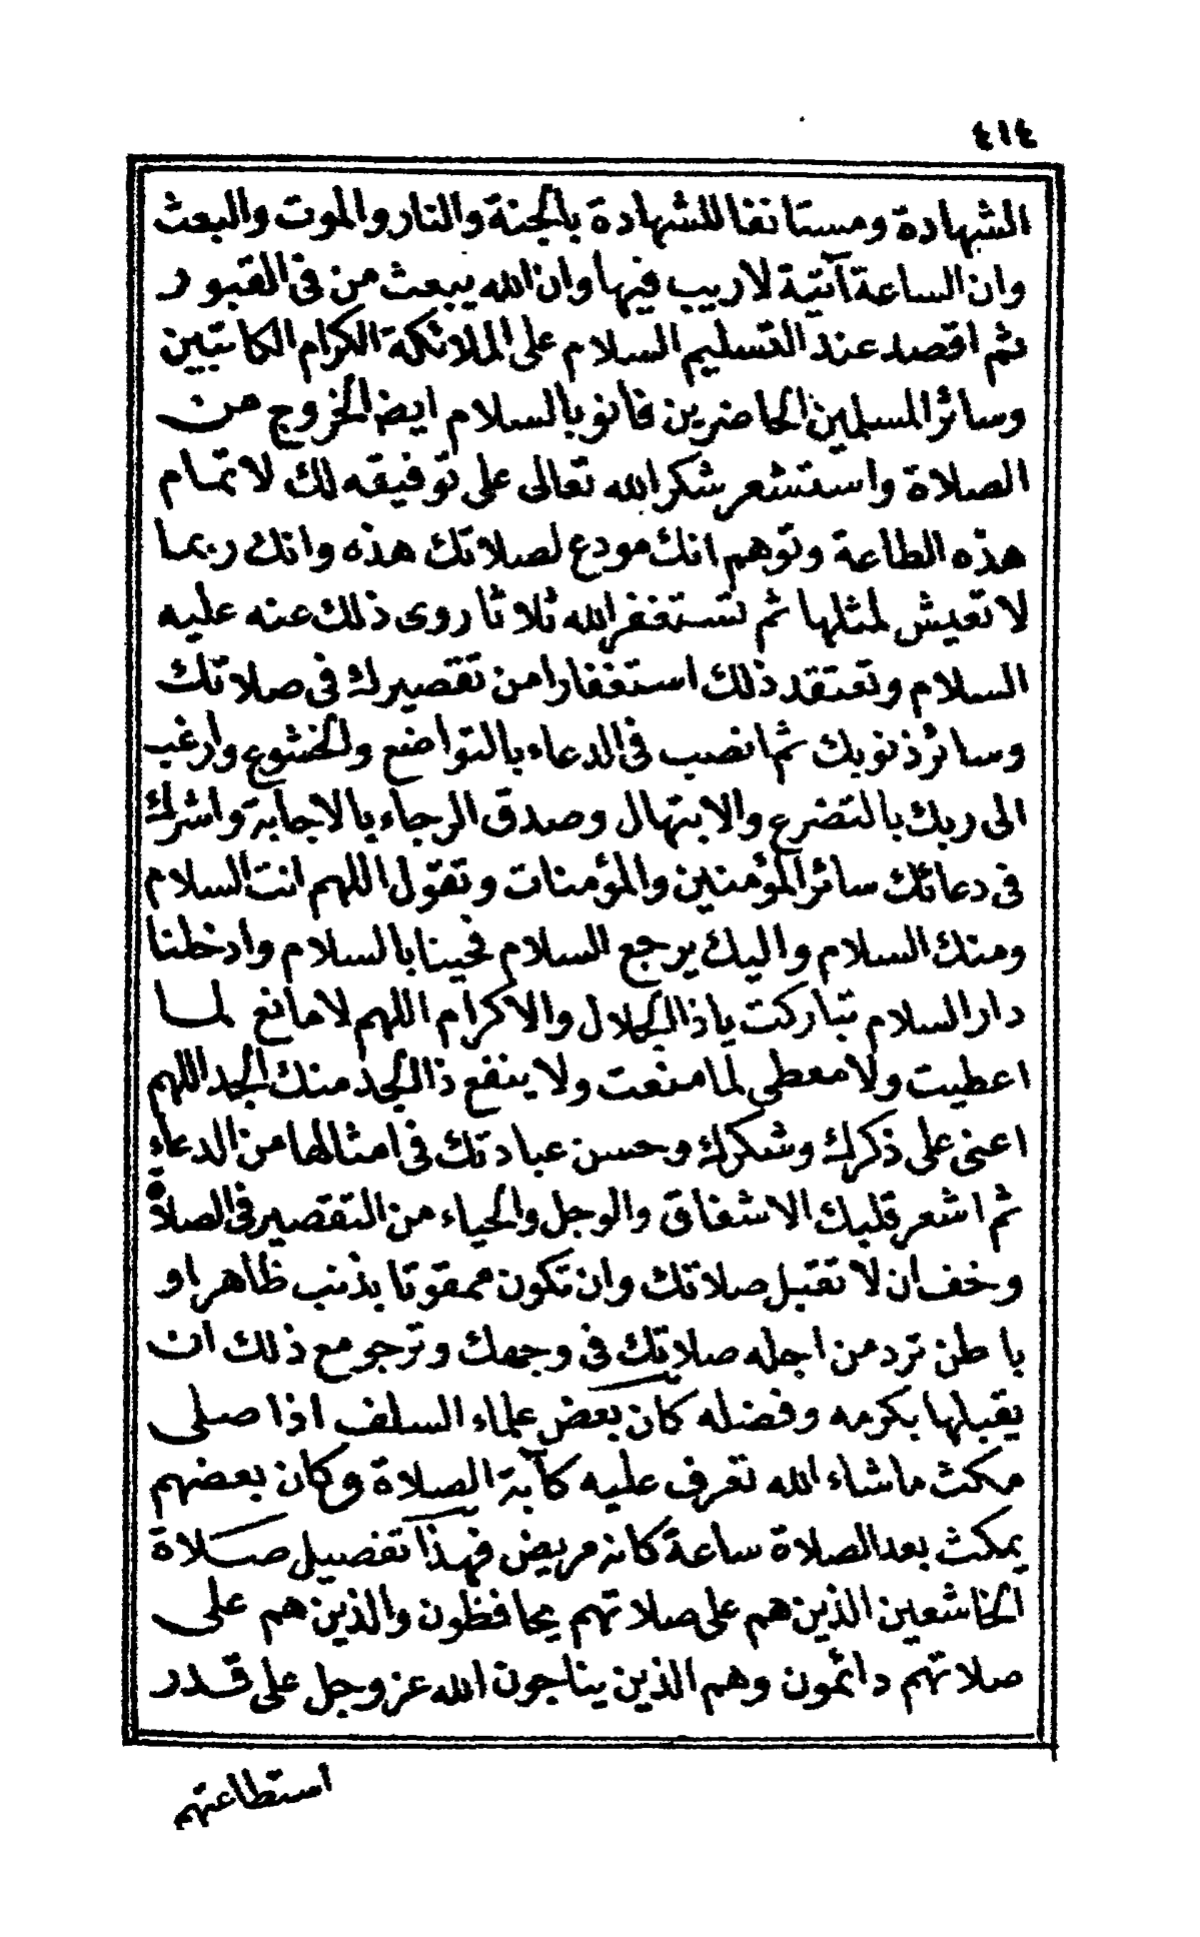 ٤١٤
الشهادة ومستانفا للشهادة بالجنة والنار والموت والبعث
وان الساعة آتية لا ريب فيها وان الله يبعث من فى القبور
ثم اقصد عند التسليم السلام على الملائكة الكرام الكاتبين
وسائر المسلمين الحاضرين فانو بالسلام ايضا الخروج من
الصلاة واستشعر شكر الله تعالى على توفيقه لك لاتمام
هذه الطاعة وتوهم انك مودع لصلاتك هذه وانك ربما
لا تعيش لمثلها ثم تستغفر الله ثلاثا روى ذلك عنه عليه
السلام وتعتقد ذلك استغفارا من تقصيرك فى صلاتك
وسائر ذنوبك ثم انصب فى الدعاء بالتواضع والخشوع وارغب
الى ربك بالتضرع والابتهال وصدق الرجاء بالاجابة واشرك
فى دعائك سائر المؤمنين والمؤمنات وتقول اللهم انت السلام
ومنك السلام واليك يرجع السلام فحينا بالسلام وادخلنا
دار السلام تباركت ياذا الجلال والاكرام اللهم لا مانع لما
اعطيت ولا معطى لما منعت ولا ينفع ذا الجد منك الجد اللهم
اعنى على ذكرك وشكرك وحسن عبادتك فى امثالها من الدعاء
ثم اشعر قلبك الاشفاق والوجل والحياء من التقصير فى الصلاة
وخف ان لا تقبل صلاتك وان تكون ممقوتا بذنب ظاهر او
باطن ترد من اجله صلاتك فى وجهك وترجو مع ذلك ان
يقبلها بكرمه وفضله كان بعض علماء السلف اذا صلى
مكث ماشاء الله تعرف عليه كآبة الصلاة وكان بعضهم
يمكث بعد الصلاة ساعة كانه مريض فهذا تفصيل صلاة
الخاشعين الذين هم على صلاتهم يحافظون والذين هم على
صلاتهم دائمون وهم الذين يناجون الله عز وجل على قدر
استطاعتهم